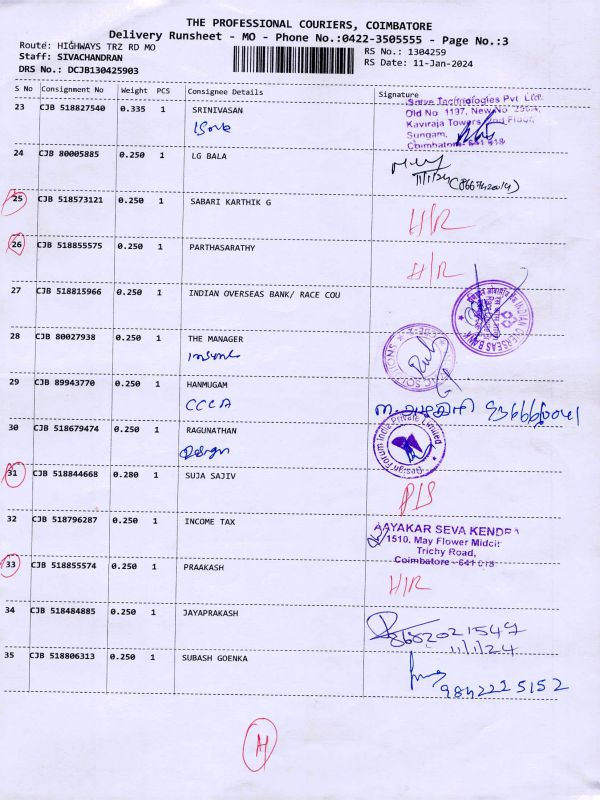 THE PROFESSIONAL COURIERS, COIMBATORE
Delivery Runsheet - MO - Phone No.:0422-3505555 - Page No.:3
Route: HIGHWAYS TRZ RD MO
RS No.: 1304259
Staff: SIVACHANDRAN
RS Date: 11-Jan-2024
DRS No.: DCJB130425903
S No Consignment No Weight PCS Consignee Details Signature
23 CJB 518827540 0.335 1 SRINIVASAN
Technologies Pvt. Ltd.
Old No 1197, New No
Kaviraja Towers Floor,
Sungam,
Coimbatore- 641 018
24 CJB 80005885 0.250 1 LG BALA
11/1/24
25 CJB 518573121 0.250 1 SABARI KARTHIK G
H/R
26 CJB 518855575 0.250 1 PARTHASARATHY
H/R
27 CJB 518815966 0.250 1 INDIAN OVERSEAS BANK/ RACE COU
INDIAN OVERSEAS BANK
28 CJB 80027938 0.250 1 THE MANAGER
SOLUTIONS
29 CJB 89943770 0.250 1 HANMUGAM
CCCA
30 CJB 518679474 0.250 1 RAGUNATHAN
Design
Design Forum India Private Limited
31 CJB 518844668 0.280 1 SUJA SAJIV
P/S
32 CJB 518796287 0.250 1 INCOME TAX
AAYAKAR SEVA KENDRA
1510, May Flower Midcit
Trichy Road,
Coimbatore - 641 018
33 CJB 518855574 0.250 1 PRAAKASH
H/R
34 CJB 518484885 0.250 1 JAYAPRAKASH
8682021547
11/1/24
35 CJB 518806313 0.250 1 SUBASH GOENKA
9842225152
A